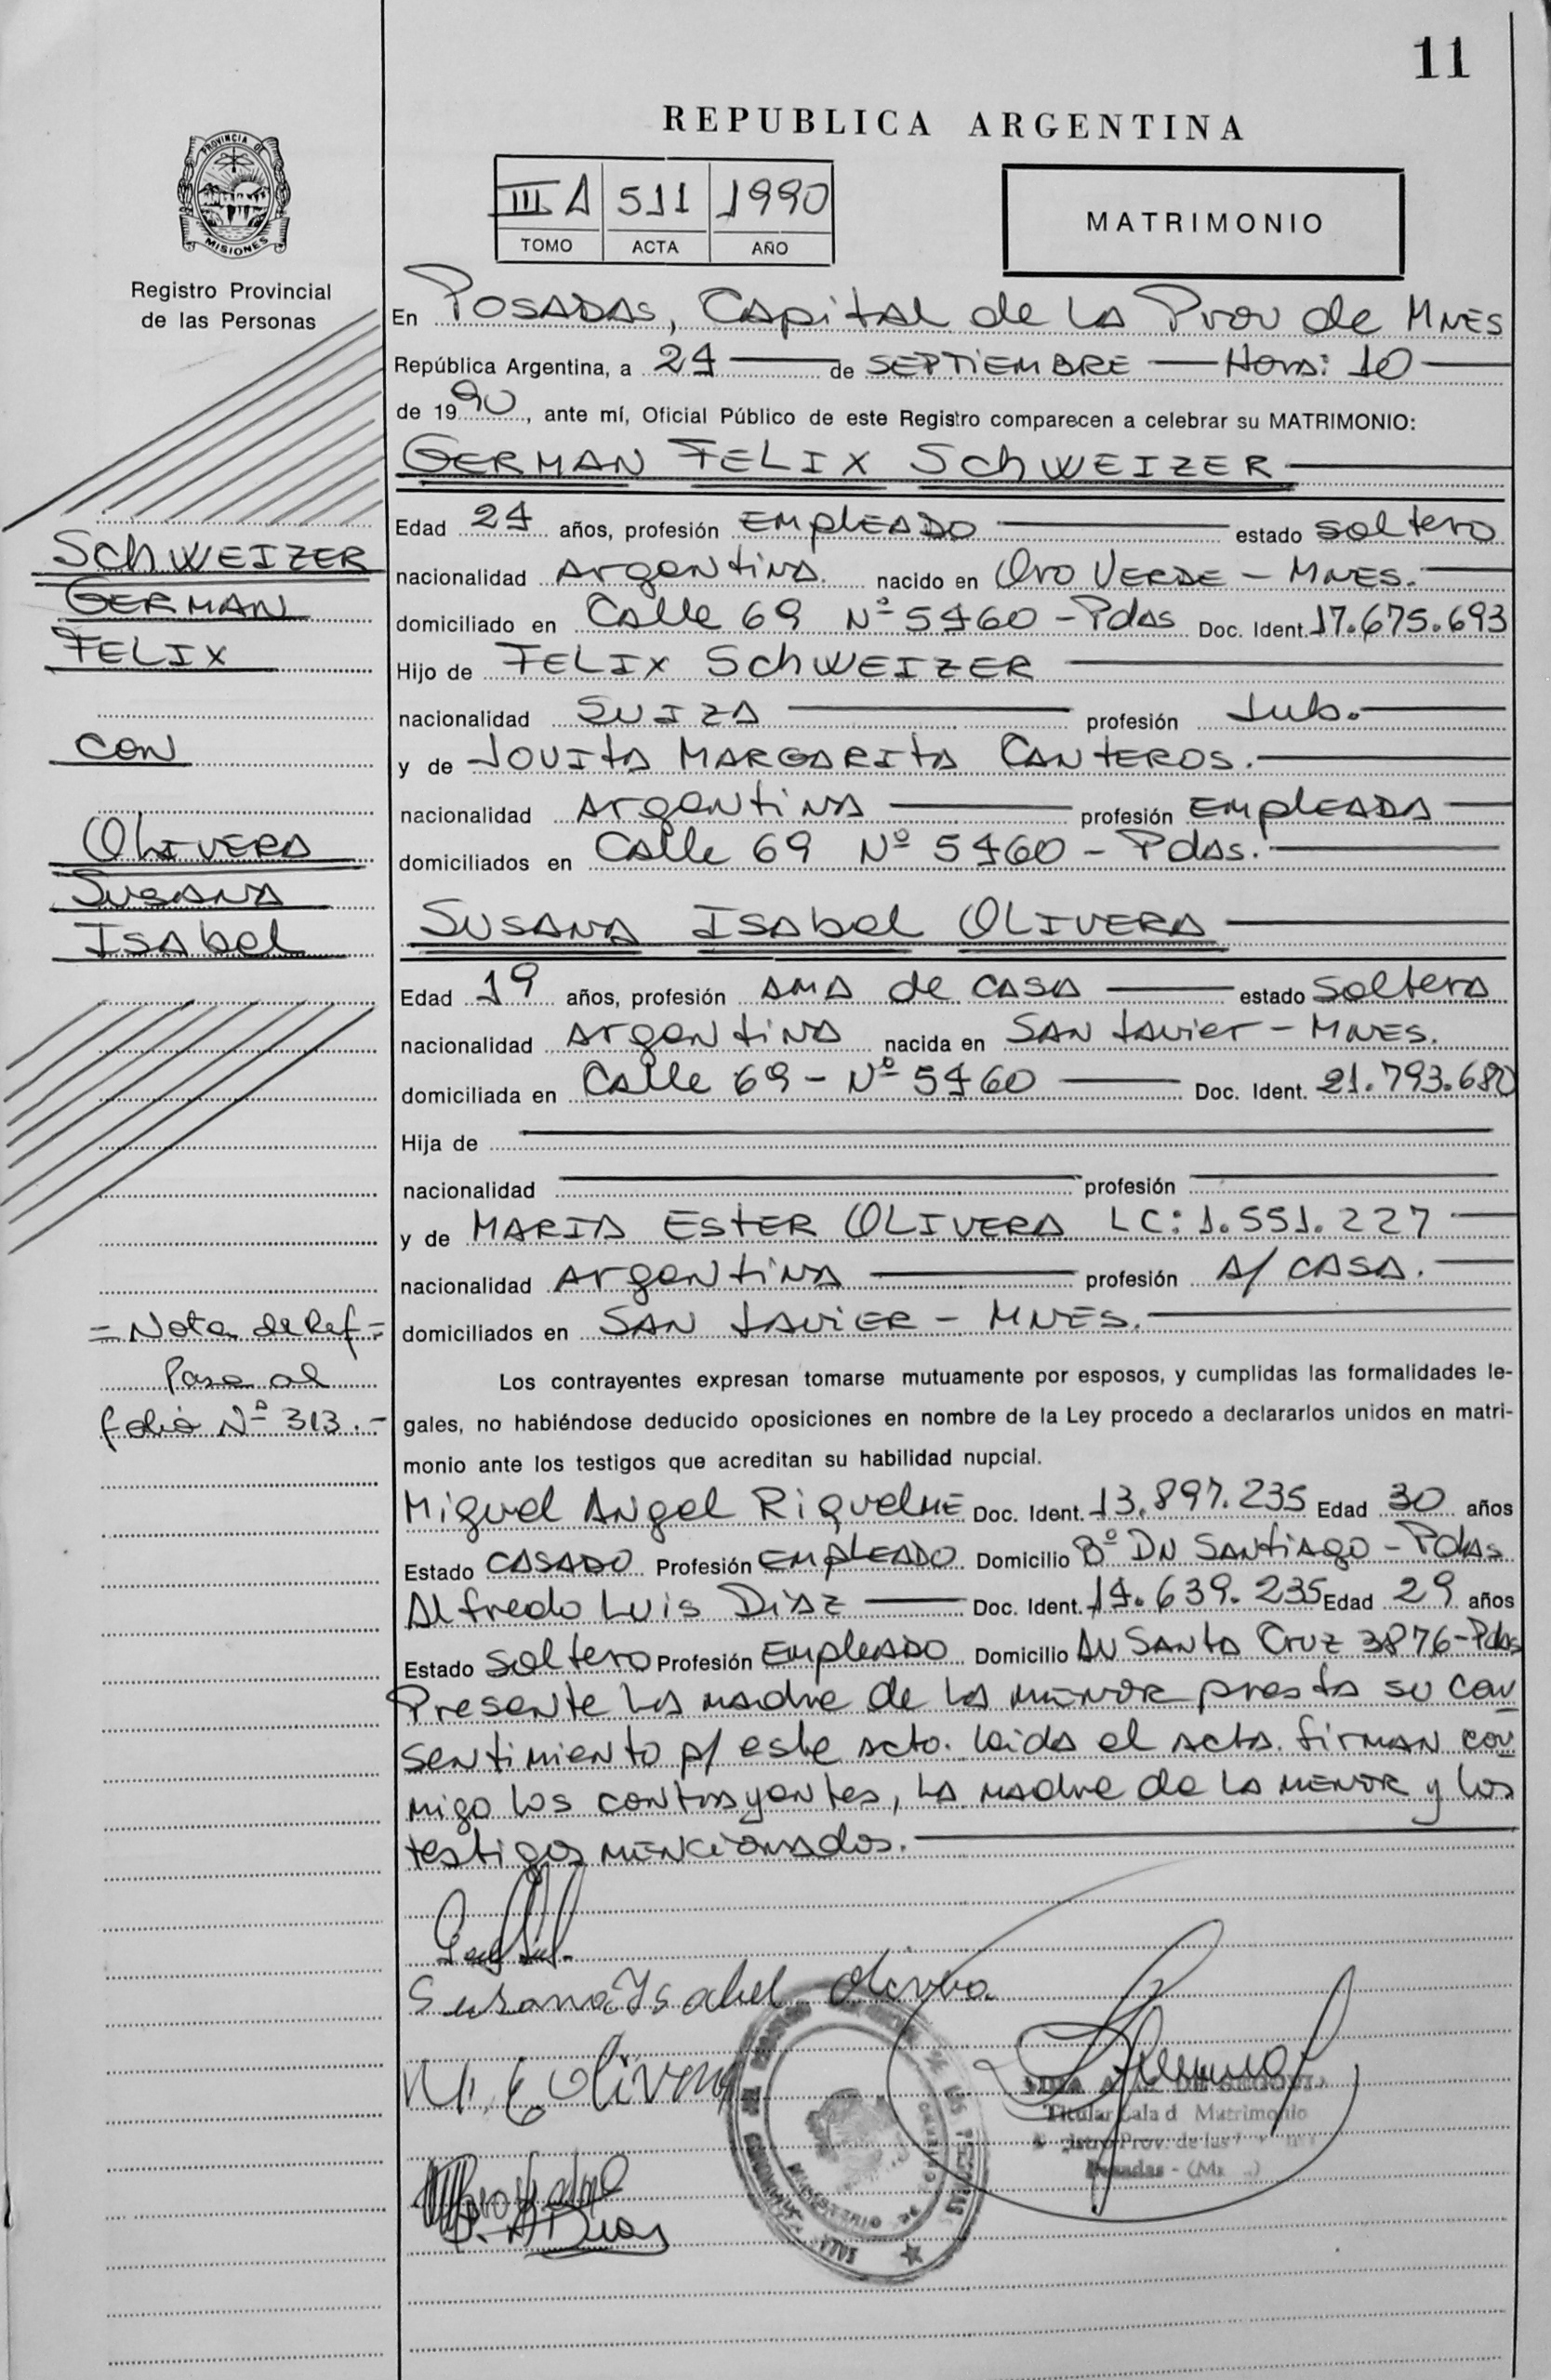 11
REPUBLICA ARGENTINA
PROVINCIA DE
MISIONES
Registro Provincial
de las Personas
III A 511 1990
TOMO ACTA AÑO
MATRIMONIO
En POSADAS, CAPITAL de LA Prov de MNES
República Argentina, a 24 de SEPTIEMBRE Hora: 10
de 1990, ante mí, Oficial Público de este Registro comparecen a celebrar su MATRIMONIO:
GERMAN FELIX SCHWEIZER
Edad 24 años, profesión EMPLEADO estado soltero
nacionalidad Argentina nacido en Oro VERDE - MNES.
domiciliado en Calle 69 Nº 5460 - Pdas Doc. Ident. 17.675.693
Hijo de FELIX SCHWEIZER
nacionalidad SUIZA profesión Jub.
y de JOVITA MARGARITA CANTEROS.
nacionalidad Argentina profesión EMPLEADA
domiciliados en Calle 69 Nº 5460 - Pdas.
SUSANA ISABEL OLIVERA
Edad 19 años, profesión AMA de CASA estado soltera
nacionalidad Argentina nacida en SAN JAVIER - MNES.
domiciliada en Calle 69 - Nº 5460 Doc. Ident. 21.793.680
Hija de
nacionalidad profesión
y de MARIA ESTER OLIVERA LC: 1.551.227
nacionalidad Argentina profesión A/ CASA.
domiciliados en SAN JAVIER - MNES.
Los contrayentes expresan tomarse mutuamente por esposos, y cumplidas las formalidades le-
gales, no habiéndose deducido oposiciones en nombre de la Ley procedo a declararlos unidos en matri-
monio ante los testigos que acreditan su habilidad nupcial.
Miguel Angel RIQUELME Doc. Ident. 13.897.235 Edad 30 años
Estado CASADO Profesión EMPLEADO Domicilio Bº DN SANTIAGO - Pdas
Alfredo Luis DIAZ Doc. Ident. 14.639.235 Edad 29 años
Estado soltero Profesión EMPLEADO Domicilio AV SANTA CRUZ 3876 - Pdas
Presente la madre de la menor presta su con
sentimiento p/ este acto. leida el acta. firman con
migo los contrayentes, la madre de la menor y los
testigos mencionados.
Susana Isabel Olivera
M. E. Olivera
A Diaz
Titular Sala d Matrimonio
Prov. de las
Posadas -
MINISTERIO DE
SCHWEIZER
GERMAN
FELIX
con
OLIVERA
SUSANA
ISABEL
= Nota de Ref =
Pasa al
folio Nº 313.-